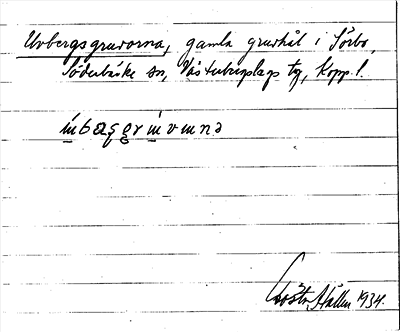 Uvbergsgruvorna, gamla gruvhål i Sörbo,
Söderbärke sn, Västerbergslags tg, Kopp. l.
Gösta Hallén 1934.